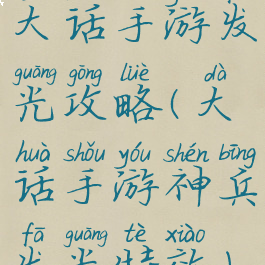 大话手游发
guāng gōng lüè dà
光攻略(大
huà shǒu yóu shén bīng
话手游神兵
fā guāng tè xiào
发光特效)